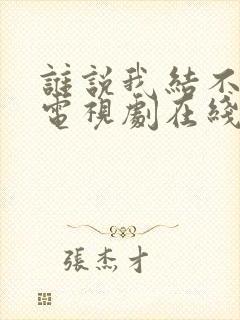 誰說我結不
電視劇在綫
張杰才